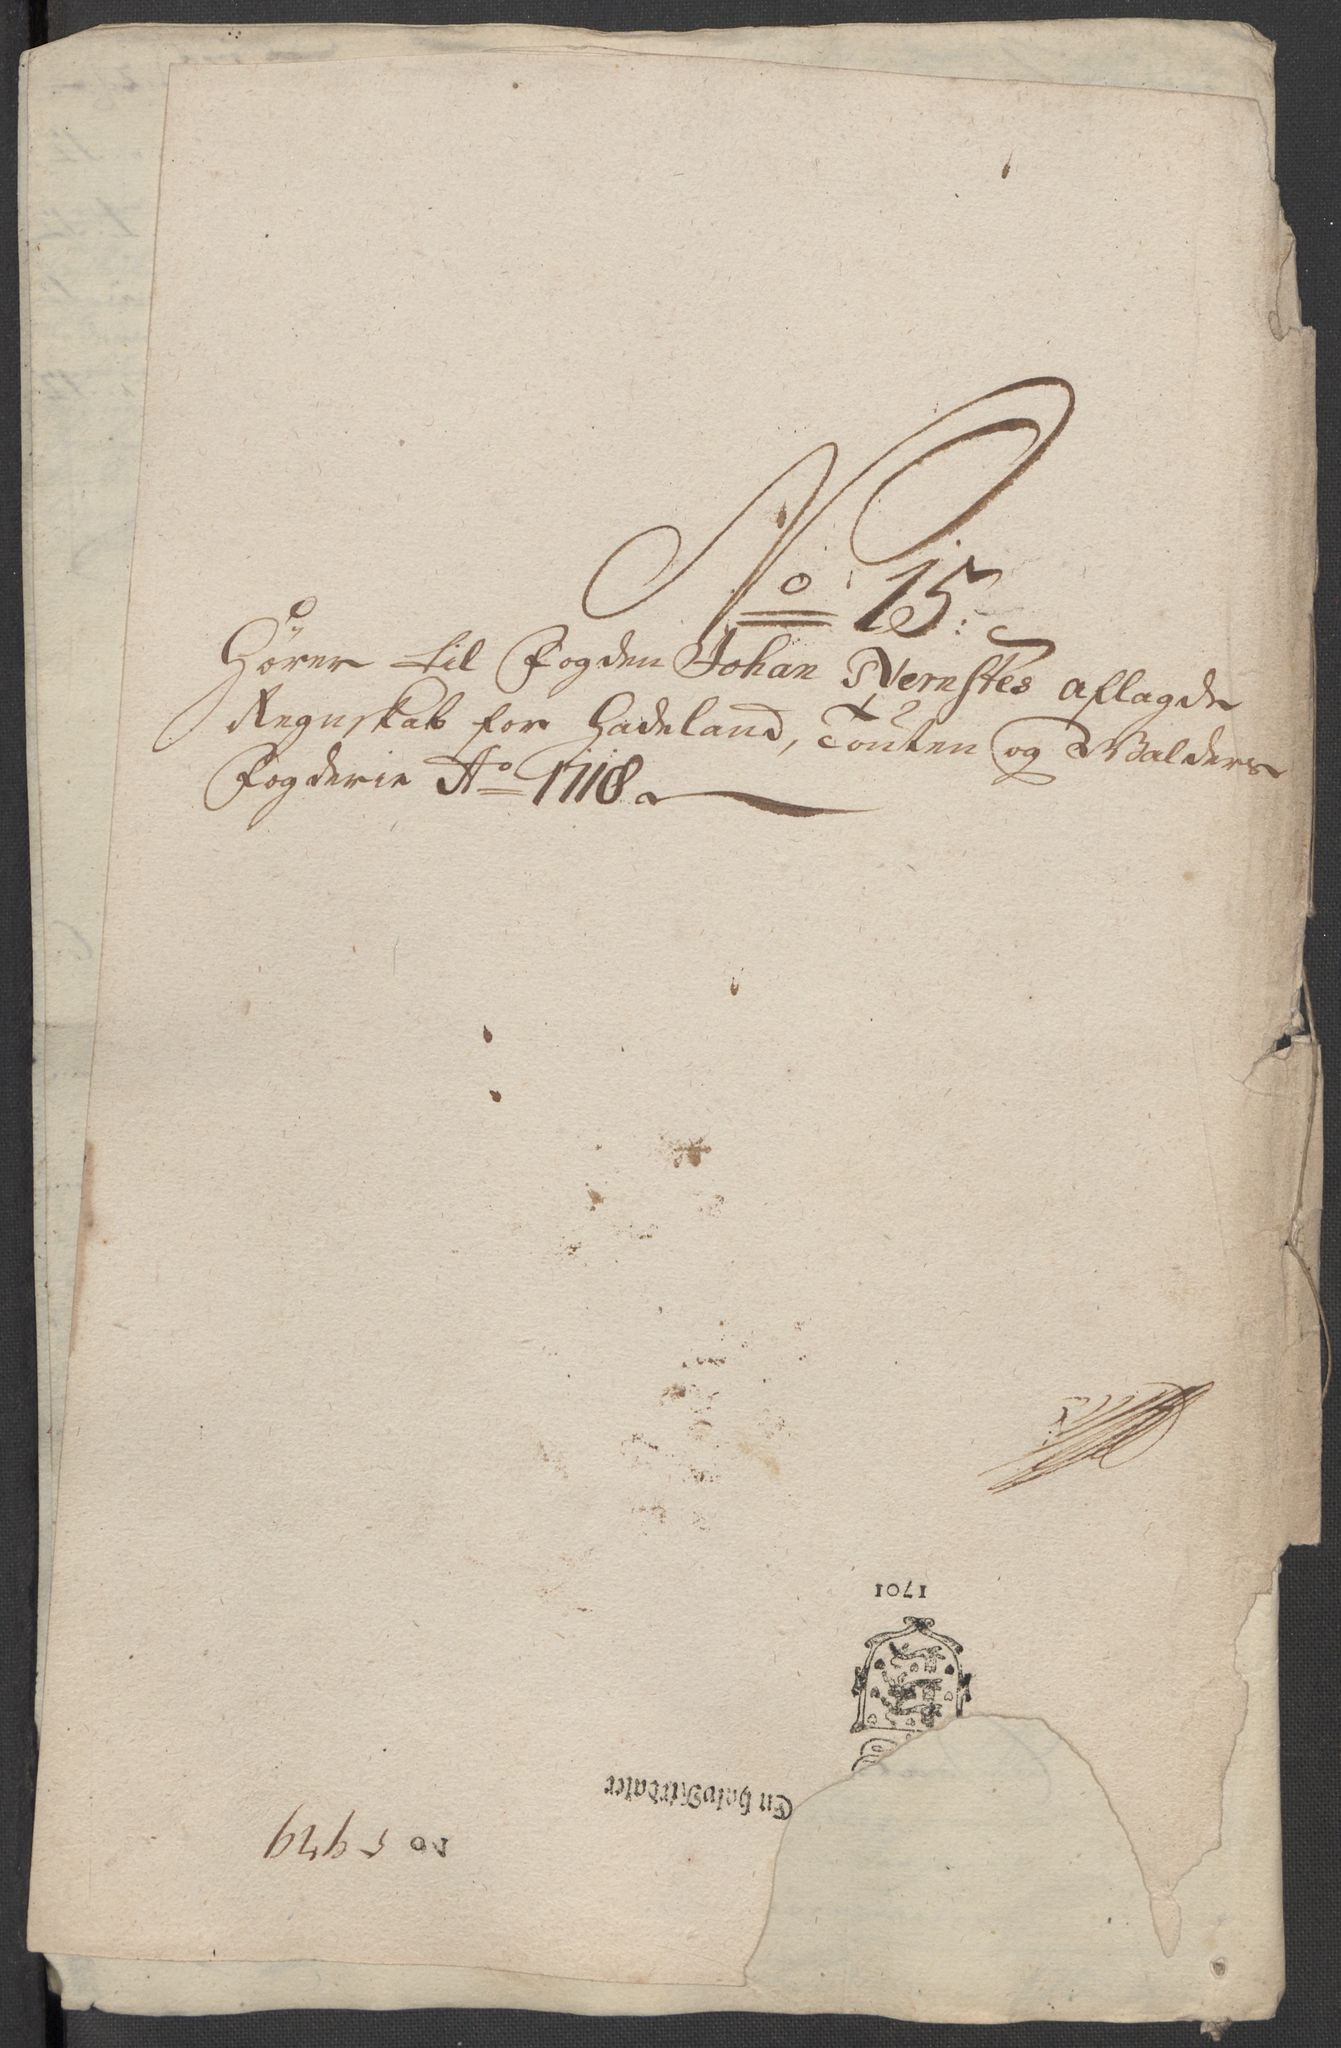 No 15.
Hörer til Fogden Johan Nernstes aflagde
Regnskab for Hadeland, Touten og Walders
Fogderie Ao 1718
1701
En halv Rixdaler
No